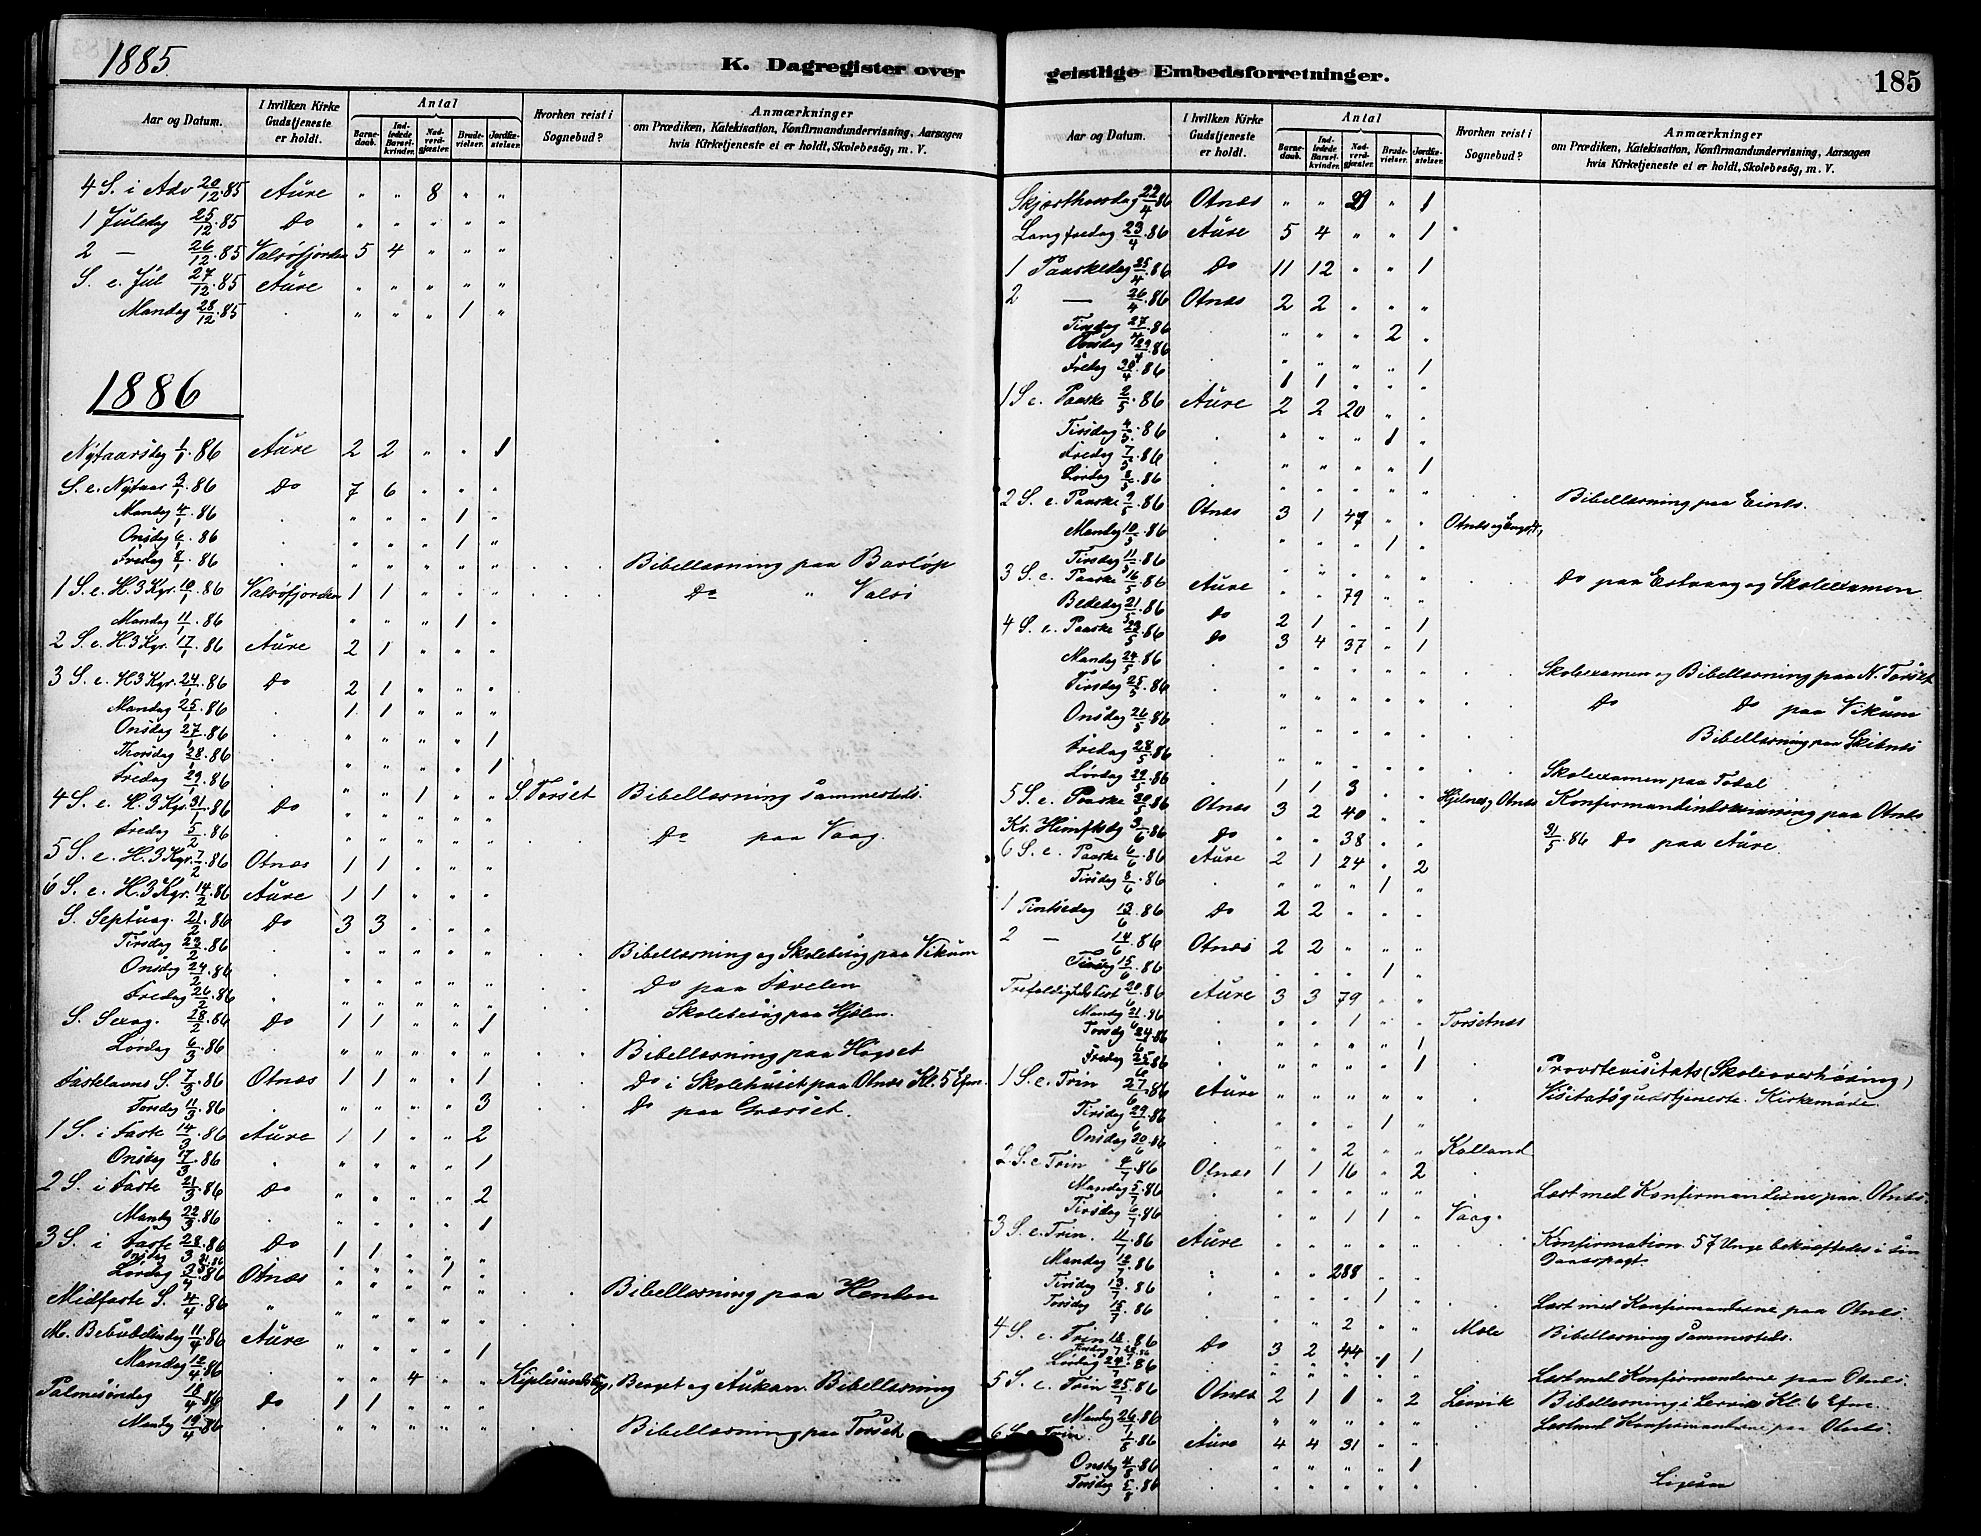 1885
K. Dagregister over
Aar og Datum.
I hvilken Kirke Gudstjeneste er holdt.
Antal
Barnedaab.
Indledede Barselkvinder.
Nadverdgjæster.
Brudevielser.
Jordfæstelser.
Hvorhen reist i Sognebud?
Anmærkninger
om Prædiken, Katekisation, Konfirmandundervisning, Aarsagen
hvis Kirketjeneste ei er holdt, Skolebesøg, m. V.
4 S. i Adv 20/12.85 Aure " " 8 " "
1 Juledag 25/12.85 Do " " " " "
2 — 26/12.85 Valsøfjorden 5 4 " " "
S. e. Jul 27/12.85 Aure " " " " "
Mandag 28/12.85 . " " " 1 "
1886
Nytaarsdag 1/1.86 Aure 2 2 " " 1
S. e. Nytaar 3/1.86 Do 7 6 " " "
Mandag 4/1.86 . " " " 1 "
Onsdag 6/1.86 . " " " 1 "
Fredag 8/1.86 . " " " " " . . Bibellæsning paa
1 S. e. H. 3 Kgr. 10/1.86 Valsøfjorden 1 1 " " " . . Do " Valsø
Mandag 11/1.86 " " " 1 "
2 S. e. H. 3 Kgr. 17/1.86 Aure 2 1 " " "
3 S. e. H 3 Kgr. 24/1.86 Do 2 1 " " "
Mandag 25/1.86 . 1 1 " " "
Onsdag 27/1.86 . " " " " 1
Thorsdag 28/1.86 . " " " " 1
Fredag 29/1.86 . " " 1 " " S. Torset Bibellæsning sammesteds.
4 S. e. H. 3 Kgr. 31/1.86 Do " " " " "
Fredag 5/2.86 . " " " " " . . Do paa Vaag.
5 S. e. H. 3 Kgr. 7/2.86 Otnæs 1 1 " " "
6 S. e. H. 3 Kgr. 14/2.86 Aure 1 1 " " "
S. Septuag. 21/2.86 Do 3 3 " " "
Tirsdag 23/2.86 . " " " " " . . Bibellæsning og Skolebesøg paa Vikum
Onsdag 24/2.86 . " " " " " . . Do paa
Fredag 26/2.86 . " " " " " . . Skolebesøg paa Hjælen.
S. Sexag. 28/2.86 Do 1 1 " " 1
Lørdag 6/3.86 . " " " " " . . Bibellæsning paa Høgset
Fastelavns S. 7/3.86 Otnæs 1 1 " " 1 . . Do i Skolehuset paa Otnæs Kl. 5 Efm.
Torsdag 11/3.86 . " " " " 3 . . Do paa Græset.
1 S. i Faste 14/3.86 Aure 1 1 " " 2
Onsdag 17/3.86 . " " " " 1
2 S. i Faste 21/3.86 Do " " " " 2
Mandag 22/3.86 . " " " " 1
3 S. i Faste 28/3.86 Do 1 1 " " "
Onsdag 31/3.86
Lørdag 3/4.86 Otnæs " " " 1 "
Midfaste S. 4/4.86 " " " " " " . . Bibellæsning paa Henden
M. Bebudelsesdag 11/4.86 Aure " " " " 1
Mandag 12/4.86 . " " 4 " " Berget og Aukan. Bibellæsning
Palmesøndag 18/4.86 Do 1 1 " " "
Mandag 19/4.86 . " " " " " . . Bibellæsning paa Torset
geistlige Embedsforretninger.
185
Aar og Datum.
I hvilken Kirke Gudstjeneste er holdt.
Antal
Barnedaab.
Indledede Barselkvinder.
Nadverdgjæster.
Brudevielser.
Jordfæstelser.
Hvorhen reist i Sognebud?
Anmærkninger
om Prædiken, Katekisation, Konfirmandundervisning, Aarsagen
hvis Kirketjeneste ei er holdt, Skolebesøg, m. V.
Skjærthorsdag 22/4.86 Otnæs " " 29 " 1
Langfredag 23/4.86 Aure 5 4 " " 1
1 Paaskedag 25/4.86 Do 11 12 " " 1
2 — 26/4.86 Otnæs 2 2 " " "
Tirsdag 27/4.86 . " " " 2 "
Torsdag 29/4.86 . " " " " 1
Fredag 30/4.86 . 1 1 " " "
1 S. e. Paaske 2/5.86 Aure 2 2 20 " "
Tirsdag 4/5.86 . " " " 1 "
Fredag 7/5.86 . " " " " 1
Lørdag 8/5.86 . " " " " " . . Bibellæsning paa
2 S. e. Paaske 9/5.86 Otnæs 3 1 47 " " Otnæs og
Mandag 10/5.86 . " " " 1 "
Tirsdag 11/5.86 . " " " " " . . Do paa og Skoleexamen
3 S. e. Paaske 16/5.86 Aure " " 79 " "
Bededag 21/5.86 Do 2 1 " " 1
4 S. e. Paaske 23/5.86 Do 3 4 37 " 1
Mandag 24/5.86 . " " " " " . . Skoleexamen og Bibellæsning paa N. Torset
Tirsdag 25/5.86 . " " " " " . . Do Do paa Vikum
Onsdag 26/5.86 . " " " " " . . Bibellæsning paa
Fredag 28/5.86 . " " " " " . . Skoleexamen paa Todal
Lørdag 29/5.86 . 1 1 3 " " Otnæs Konfirmandindskrivning paa Otnæs
5 S. e. Paaske 30/5.86 Otnæs 3 2 40 " " 31/5.86 Do paa Aure.
Kr. Himfltsdg 3/6.86 Do " " 38 " "
6 S. e. Paaske 6/6.86 Aure 2 1 24 " 2
Tirsdag 8/6.86 . " " " 1 "
1 Pintsedag 13/6.86 Do 2 2 " " "
2 — 14/6.86 Otnæs 2 2 " " "
Tirsdag 15/6.86 . " " " 1 "
Trefoldigheds Fest 20/6.86 Aure 3 3 79 " "
Mandag 21/6.86 . " " 1 " " Torsetnæs
Torsdag 24/6.86 . " " " " 1
Fredag 25/6.86 . " " " " 1 . Provstevisitats (Skoleoverhøring)
1 S. e. Trin 27/6.86 Aure " " " " " . Visitatsgudstjeneste. Kirkemøde.
Tirsdag 29/6.86 . " " " 1 "
Onsdag 30/6.86 . " " 2 " " Kalland
2 S. e Trin 4/7.86 Otnæs 1 1 16 " 2
Mandag 5/7.86 . " " " " " . Læst med Konfirmanderne paa Otnæs.
Tirsdag 6/7.86 . " " 1 1 " Vaag.
3 S. e. Trin. 11/7.86 Aure " " " " " . Konfirmation. 57 Unge bekræftedes i sin
Daabspagt.
Mandag 12/7.86 . " " 288 " "
Tirsdag 13/7.86 . " " " 1 " . Læst med Konfirmanderne paa Otnæs.
Torsdag 15/7.86 . " " 2 " " Mæle Bibellæsning sammesteds.
4 S. e. Trin 18/7.86 Do 3 2 44 " 1
Lørdag 24/7.86 . " " " 1 " Læst med Konfirmanderne paa Otnæs.
5 S. e. Trin 25/7.86 Otnæs 2 1 1 " 2 Lesvik Bibellæsning i Lesvik Kl. 6 Efm.
Mandag 26/7.86 . " " " " " . Læst med Konfirmanterne paa Otnæs.
6 S. e. Trin. 1/8.86 Aure 4 4 31 " "
Onsdag 4/8.86 . " " " " 1
Torsdag 5/8.86 . " " " " " . Ligesaa